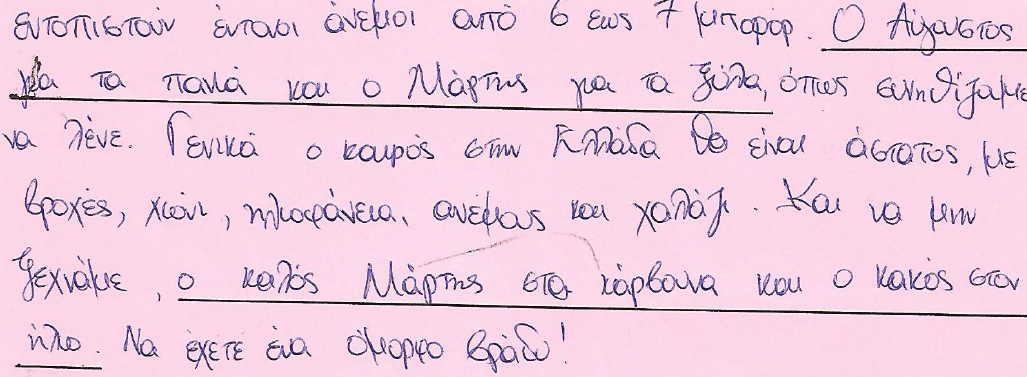 εντοπιστούν έντασι άνεμοι από 6 εως 7 μποφόρ. Ο Αύγουστος
για τα πανιά και ο Μάρτης για τα ξύλα, όπως συνηθίζαμε
να λένε. Γενικά ο καιρός στην Ελλάδα θα είναι άστατος, με
βροχές, χιόνι, ηλιοφάνεια, ανέμους και χαλάζι. Και να μην
ξεχνάμε, ο καλός Μάρτης στα κάρβουνα και ο κακός στον
ήλιο. Να έχετε ένα όμορφο βράδυ!